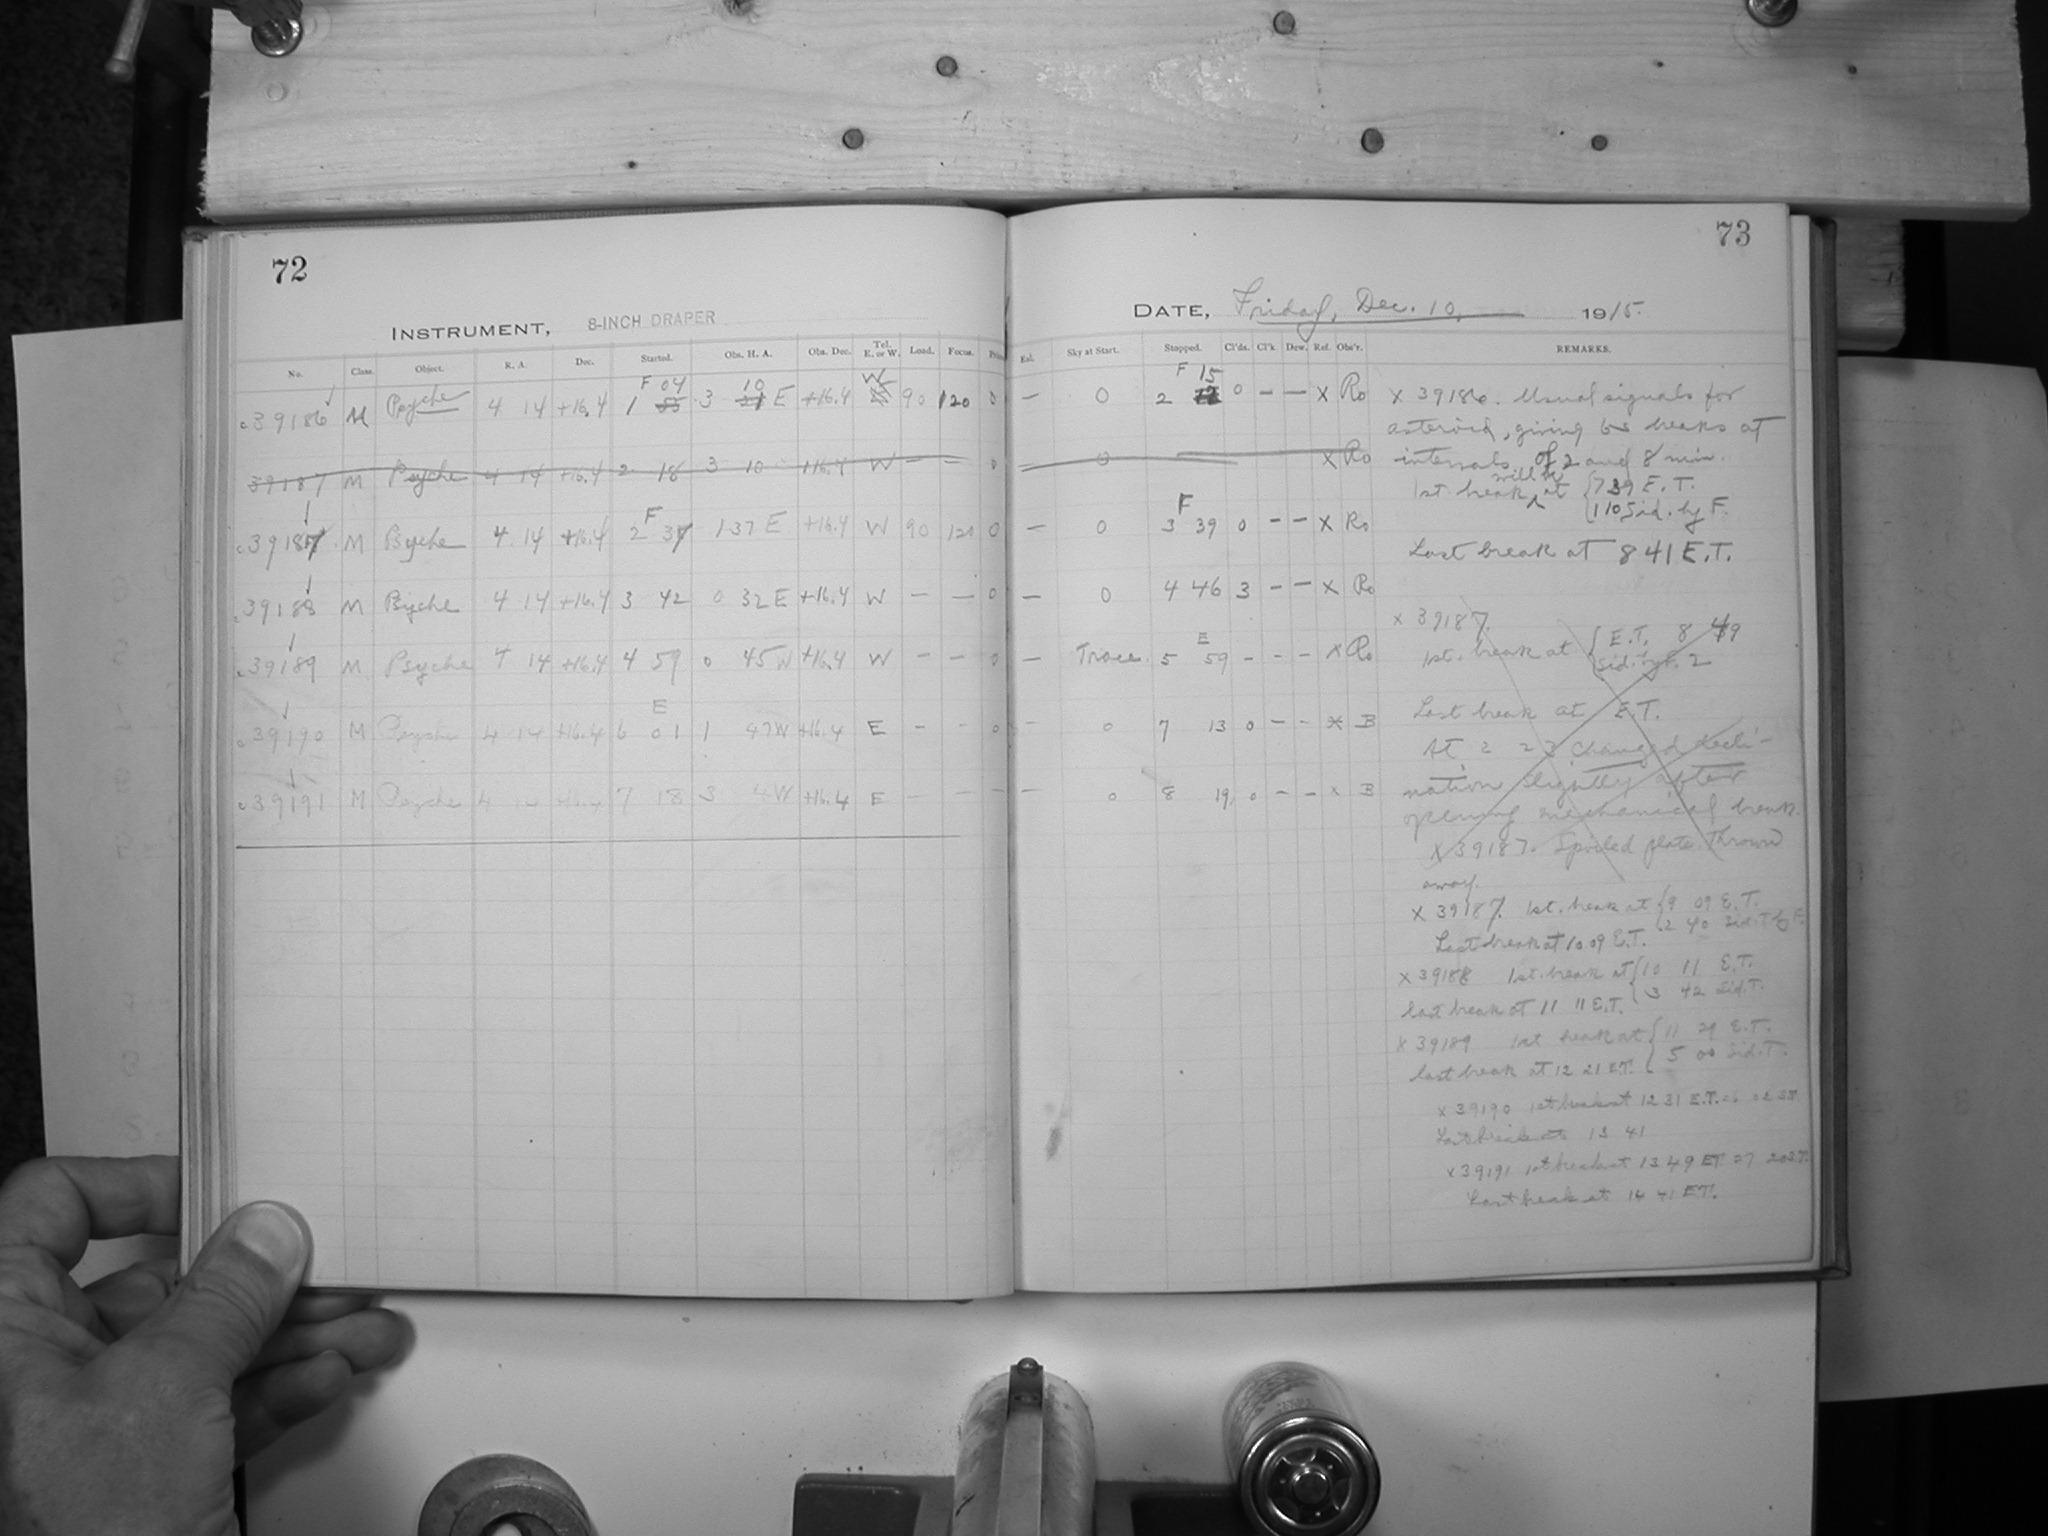 72
INSTRUMENT, 8-INCH DRAPER
No. Class. Object. R. A. Dec. Started. Obs. H. A. Obs. Dec. Tel. E. or W. Load. Focus.
c 39186 M Psyche 4 14 +16.4 1 F 04 3 10 E +16.4 W 90 120 0
39187 M Psyche 4 14 +16.4 2 18 3 10 +16.4 W — — 0
c 39187 M Psyche 4 14 +16.4 2 F 37 1 37 E +16.4 W 90 120 0
c 39188 M Psyche 4 14 +16.4 3 42 0 32 E +16.4 W — — 0
c 39189 M Psyche 4 14 +16.4 4 59 0 45 W +16.4 W - - 0
c 39190 M Psyche 4 14 +16.4 6 E 01 1 47 W +16.4 E - - 0
c 39191 M Psyche 4 14 +16.4 7 18 3 4 W +16.4 E - -
73
DATE, Friday, Dec. 10, 1915.
Sky at Start. Stopped. Cl'ds. Cl'k Dew. Ref. Obs'r. REMARKS.
— 0 2 F 15 0 — — X Ro
0 X Ro
— 0 3 F 39 0 - - X Ro
— 0 4 46 3 - - X Ro
— Trace 5 E 59 - - - X Ro
- 0 7 13 0 - - X B
- 0 8 19 0 - - X B
X 39186. Usual signals for
asteroid, giving breaks at
intervals of 2 and 8 min.
1st. break will be at { 7 39 E.T.
1 10 Sid. by F.
Last break at 8 41 E.T.
X 39187.
1st. break at { E.T. 8 49
Sid. by F. 2
Last break at E.T.
At 2 23 changed decli-
nation slightly after
opening mechanical break.
X 39187. Spoiled plate. Thrown
away.
X 39187. 1st. break at { 9 09 E.T.
2 40 Sid. T by F.
Last break at 10 09 E.T.
X 39188 1st. break at { 10 11 E.T.
3 42 Sid. T.
last break at 11 11 E.T.
X 39189 1st break at { 11 29 E.T.
5 00 Sid. T.
last break at 12 21 E.T.
X 39190 1st break at 12 31 E.T. = 6 02 S.T.
Last break at 13 41
X 39191 1st break at 13 49 E.T. = 7 20 S.T.
Last break at 14 41 E.T.